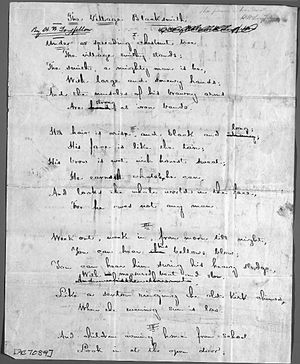 The Village Blacksmith.
By H. W. Longfellow
Under a spreading chestnut tree
The village smithy stands;
The smith, a mighty man is he,
With large and sinewy hands,
And the muscles of his brawny arms
Are strong as iron bands.
His hair is crisp, and black, and long,
His face is like the tan;
His brow is wet with honest sweat;
He earns whate'er he can,
And looks the whole world in the face,
For he owes not any man.
Week out, week in, from morn till night,
You can hear his bellows blow,
You can hear him swing his heavy sledge,
With measured beat and slow
Like a sexton ringing the old kirk chimes,
When the evening sun is low.
And children coming home from school
Look in at the open door;